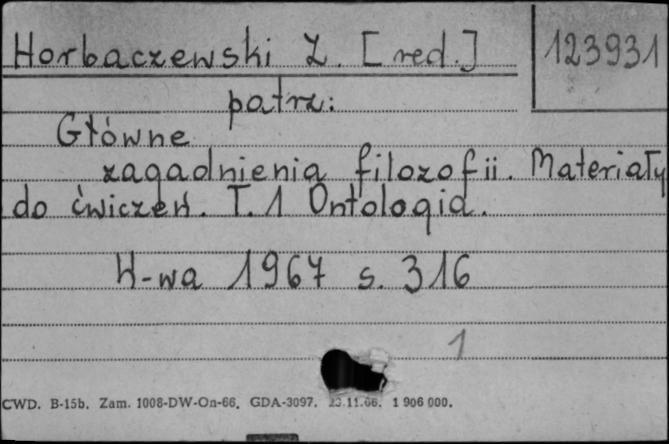 Horbaczewski Z. [red.] 123931
patrz:
Główne
zagadnienia filozofii. Materiały
do ćwiczeń. T. 1 Ontologia.
W-wa 1967 s. 316
1
CWD. B-15b. Zam. 1008-DW-On-66. GDA-3097. 23.11.66. 1 906 000.